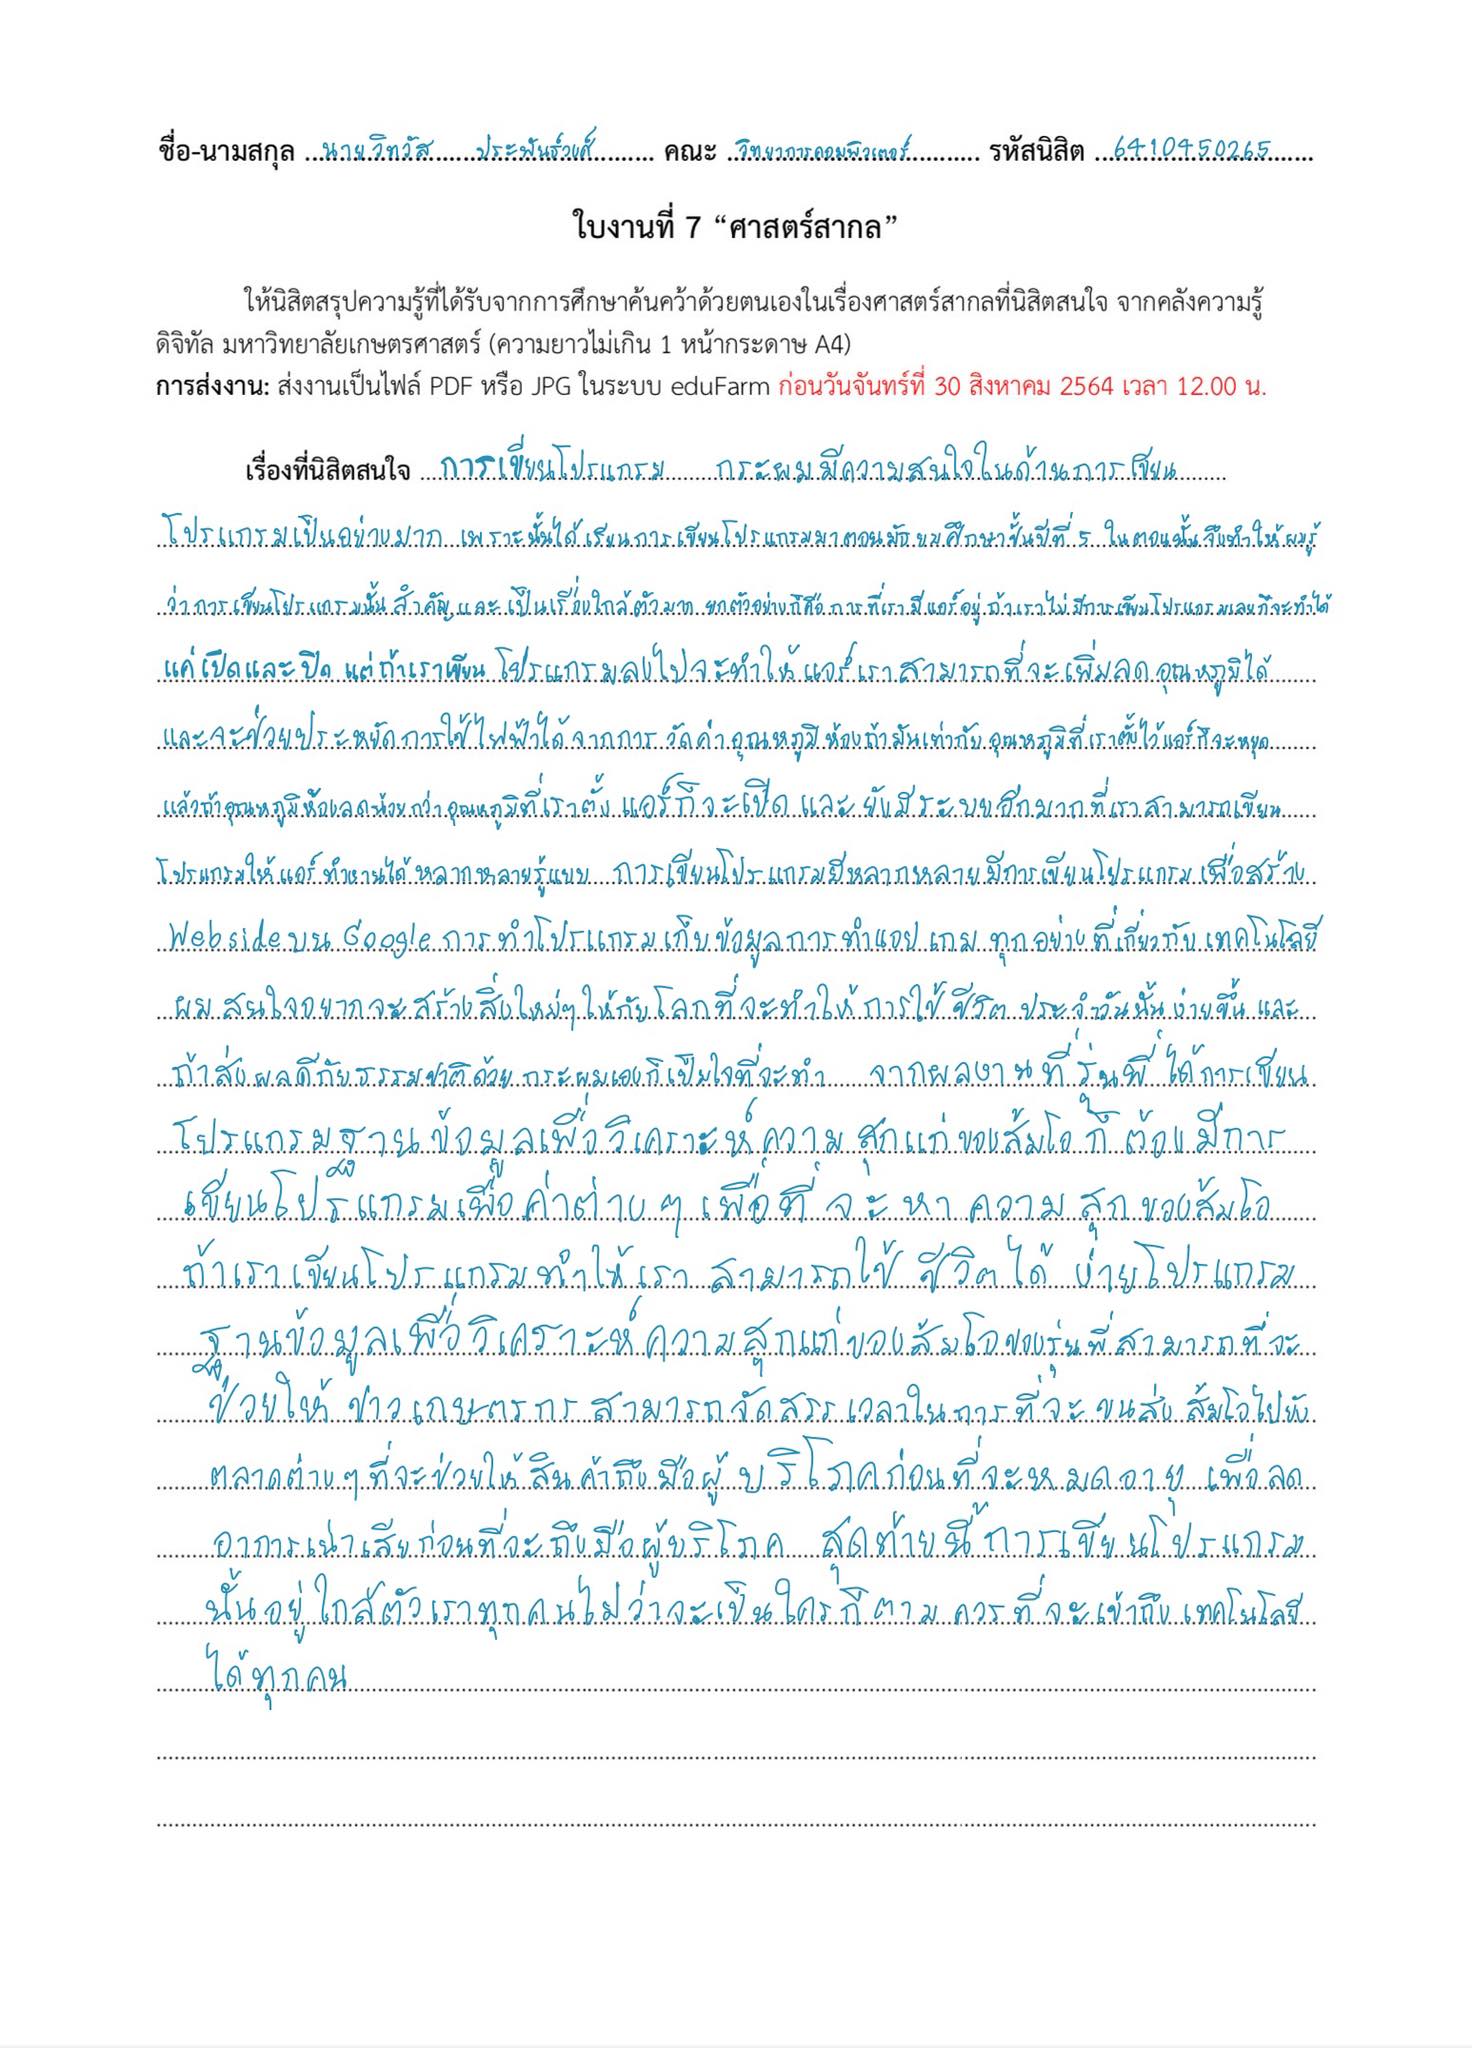 ชื่อ-นามสกุล นายวิทวัส ประพันธ์วงศ์ คณะ วิทยาการคอมพิวเตอร์ รหัสนิสิต 6410450265
ใบงานที่ 7 “ศาสตร์สากล”
ให้นิสิตสรุปความรู้ที่ได้รับจากการศึกษาค้นคว้าด้วยตนเองในเรื่องศาสตร์สากลที่นิสิตสนใจ จากคลังความรู้
ดิจิทัล มหาวิทยาลัยเกษตรศาสตร์ (ความยาวไม่เกิน 1 หน้ากระดาษ A4)
การส่งงาน: ส่งงานเป็นไฟล์ PDF หรือ JPG ในระบบ eduFarm ก่อนวันจันทร์ที่ 30 สิงหาคม 2564 เวลา 12.00 น.
เรื่องที่นิสิตสนใจ การเขียนโปรแกรม กระผมมีความสนใจในด้านการเขียน
โปรแกรมเป็นอย่างมาก เพราะนั้นได้เรียนการเขียนโปรแกรมมาตอนมัธยมศึกษาชั้นปีที่ 5 ในตอนนั้นจึงทำให้ผมรู้
ว่าการเขียนโปรแกรมนั้นสำคัญและเป็นเรื่องใกล้ตัวมาก ยกตัวอย่างก็คือ การที่เรามีแอร์อยู่ถ้าเราไม่มีการเขียนโปรแกรมเลยก็จะทำได้
แค่เปิดและปิด แต่ถ้าเราเขียนโปรแกรมลงไปจะทำให้แอร์เราสามารถที่จะเพิ่มลดอุณหภูมิได้
และจะช่วยประหยัดการใช้ไฟฟ้าได้จากการ วัดค่าอุณหภูมิห้องถ้ามันเท่ากับ อุณหภูมิที่เราตั้งไว้แอร์ก็จะหยุด
แล้วถ้าอุณหภูมิห้องลดน้อยกว่าอุณหภูมิที่เราตั้ง แอร์ก็จะเปิด และยังมีระบบอีกมากที่เราสามารถเขียน
โปรแกรมให้แอร์ทำงานได้หลากหลายรู้แบบ การเขียนโปรแกรมมีหลากหลายมีการเขียนโปรแกรมเพื่อสร้าง
Webside บน Google การทำโปรแกรมเก็บข้อมูลการทำแอป เกม ทุกอย่างที่เกี่ยวกับเทคโนโลยี
ผมสนใจอยากจะสร้างสิ่งใหม่ๆให้กับโลกที่จะทำให้การใช้ชีวิตประจำวันนั้นง่ายขึ้น และ
ถ้าส่งผลดีกับธรรมชาติด้วยกระผมเองก็เป็มใจที่จะทำ จากผลงานที่รุ่นพี่ได้การเขียน
โปรแกรมฐานข้อมูลเพื่อวิเคราะห์ความสุกแก่ของส้มโอก็ต้องมีการ
เขียนโปรแกรมเพื่อค่าต่างๆเพื่อที่จะหาความสุกของส้มโอ
ถ้าเราเขียนโปรแกรมทำให้เราสามารถใช้ชีวิตได้ง่ายโปรแกรม
ฐานข้อมูลเพื่อวิเคราะห์ความสุกแก่ของส้มโอของรุ่นพี่สามารถที่จะ
ช่วยให้ชาวเกษตรกรสามารถจัดสรรเวลาในการที่จะขนส่งส้มโอไปยัง
ตลาดต่างๆที่จะช่วยให้สินค้าถึงมือผู้บริโภคก่อนที่จะหมดอายุ เพื่อลด
อาการเน่าเสียก่อนที่จะถึงมือผู้บริโภค สุดท้ายนี้การเขียนโปรแกรม
นั้นอยู่ใกล้ตัวเราทุกคนไม่ว่าจะเป็นใครก็ตามควรที่จะเข้าถึงเทคโนโลยี
ได้ทุกคน